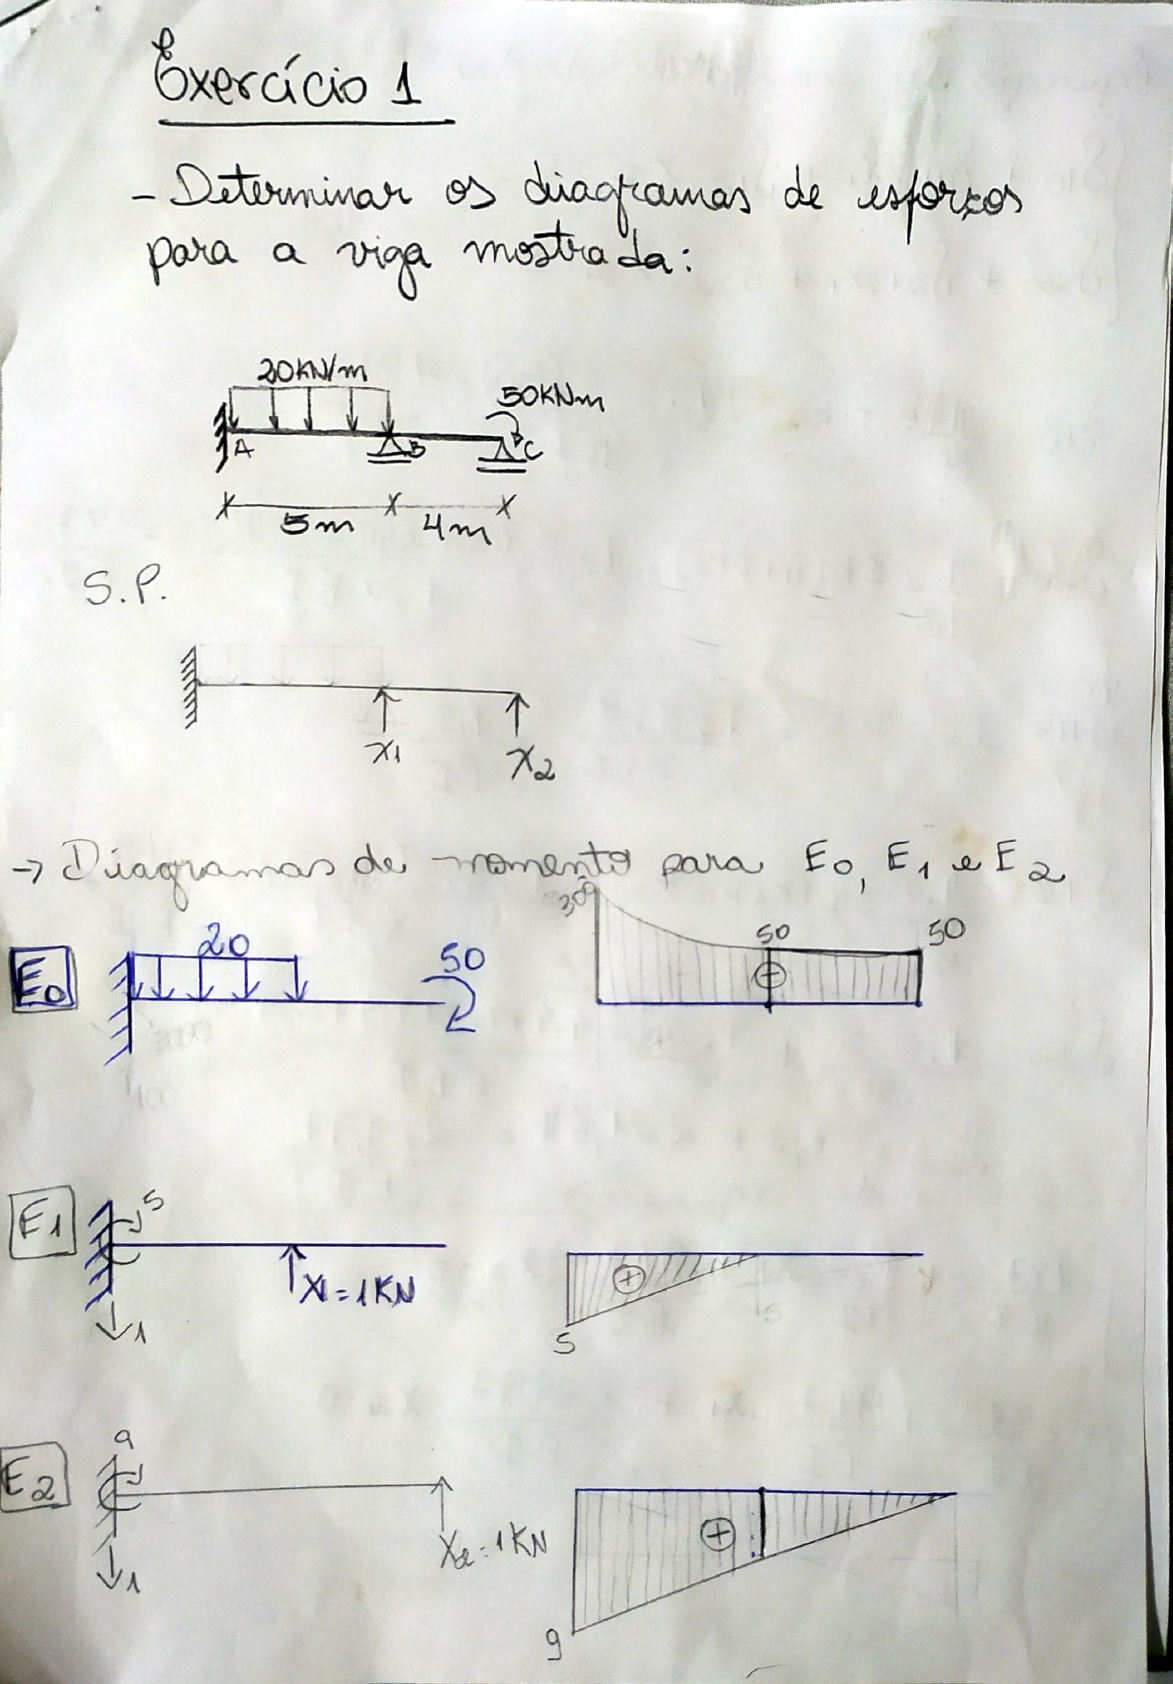 Exercício 1
- Determinar os diagramas de esforços
para a viga mostrada:
20KN/m
50KNm
A B C
5m 4m
S.P.
X1 X2
→ Diagramas de momento para E0, E1 e E2
300 50 50
E0 20 50
-
E1 5
X1=1KN
1
+
5
E2 9
X2=1KN
1
+
9